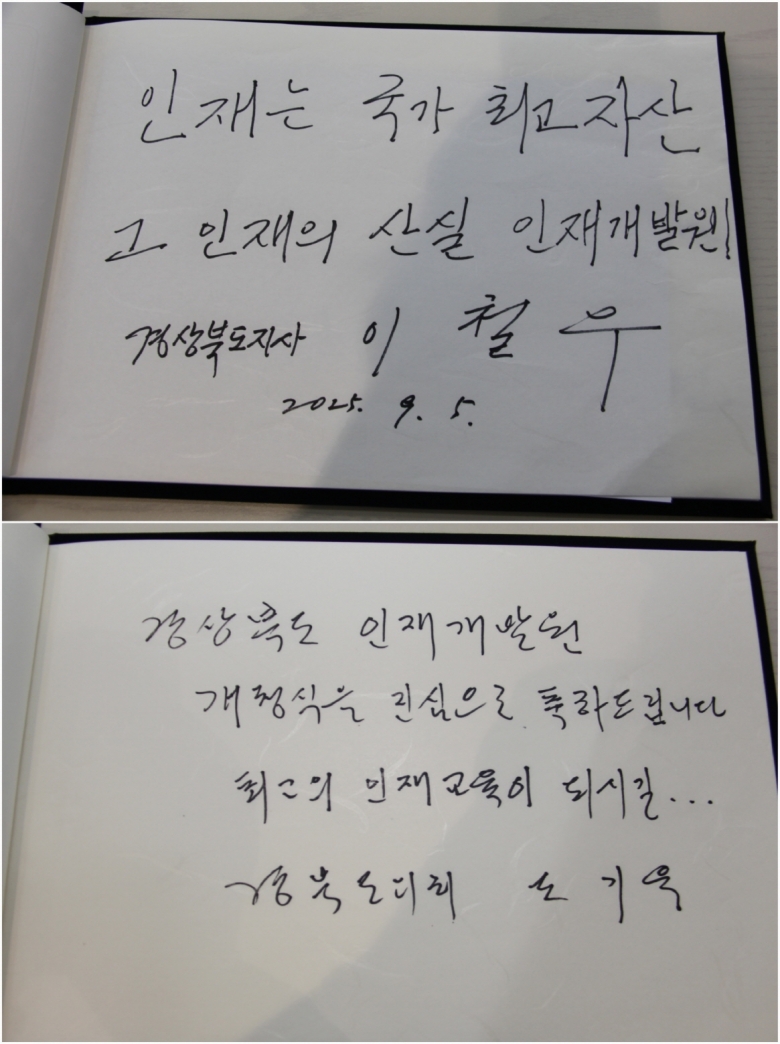 인재는 국가 최고자산
그 인재의 산실 인재개발원!
경상북도지사 이 철 우
2025. 9. 5.
경상북도 인재개발원
개청식을 진심으로 축하드립니다
최고의 인재교육이 되시길...
경북도의회 도기욱